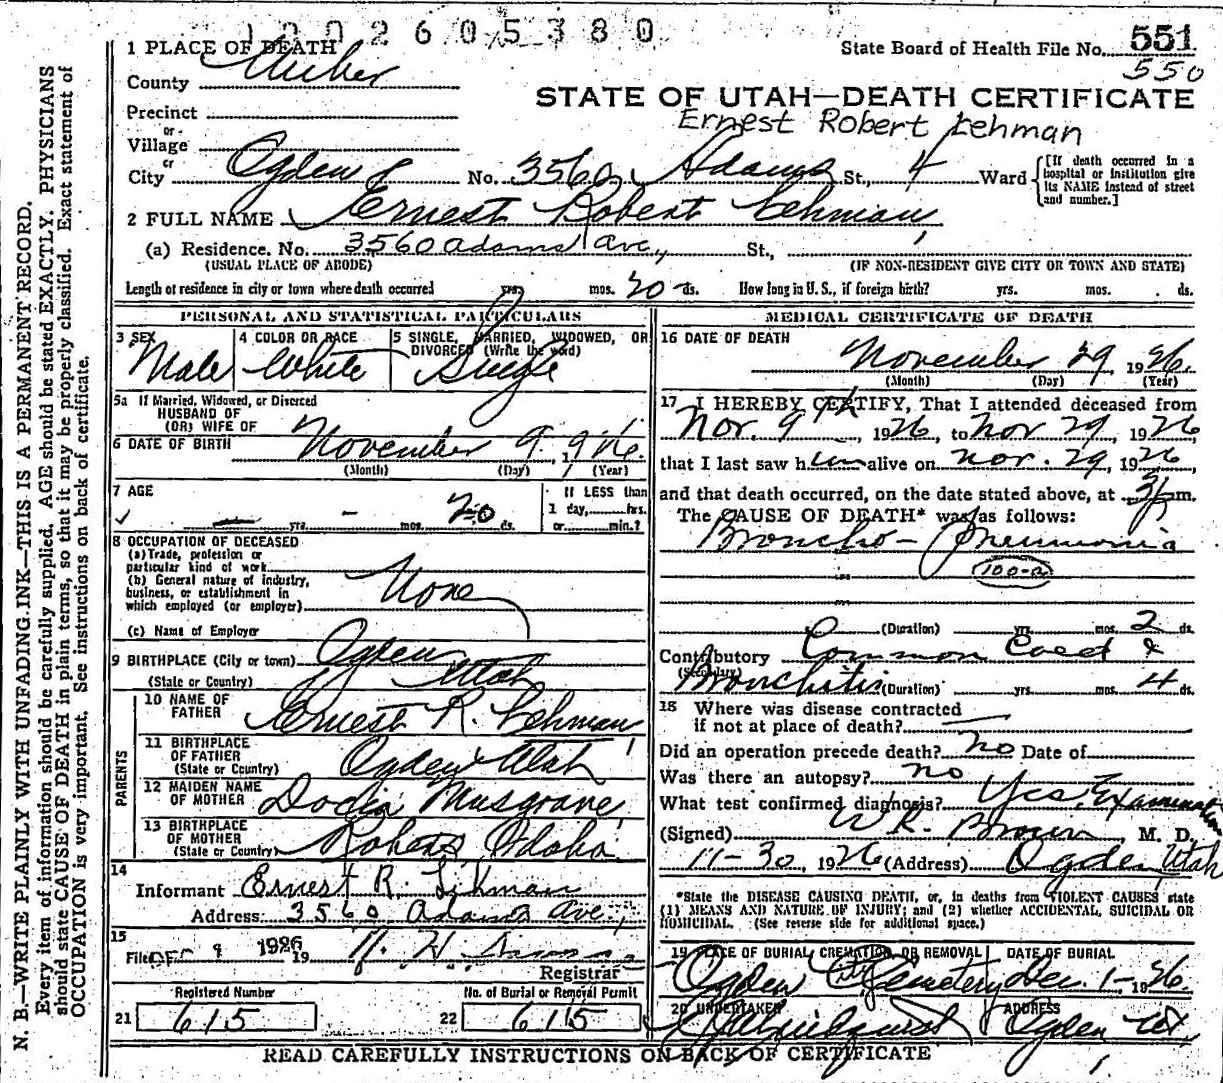 1202605380
State Board of Health File No. 551
550
1 PLACE OF DEATH
County Weber
STATE OF UTAH—DEATH CERTIFICATE
Ernest Robert Lehman
Precinct
or
Village
or
City Ogden No. 3560 Adams St., 4 Ward
[If death occurred in a hospital or institution give its NAME instead of street and number.]
2 FULL NAME Ernest Robert Lehman
(a) Residence. No. 3560 Adams Ave., St.,
(USUAL PLACE OF ABODE) (IF NON-RESIDENT GIVE CITY OR TOWN AND STATE)
Length of residence in city or town where death occurred yrs. mos. 20 ds. How long in U. S., if foreign birth? yrs. mos. ds.
PERSONAL AND STATISTICAL PARTICULARS
3 SEX
Male
4 COLOR OR RACE
White
5 SINGLE, MARRIED, WIDOWED, OR DIVORCED (Write the word)
Single
5a If Married, Widowed, or Divorced
HUSBAND OF
(OR) WIFE OF
6 DATE OF BIRTH November 9, 1926.
(Month) (Day) (Year)
7 AGE
— yrs. - mos. 20 ds.
If LESS than
1 day, hrs.
or min.?
8 OCCUPATION OF DECEASED
(a) Trade, profession or
particular kind of work
(b) General nature of industry,
business, or establishment in
which employed (or employer)
None
(c) Name of Employer
9 BIRTHPLACE (City or town) Ogden
(State or Country) Utah
PARENTS
10 NAME OF FATHER Ernest R. Lehman
11 BIRTHPLACE OF FATHER
(State or Country) Ogden Utah
12 MAIDEN NAME OF MOTHER Docia Musgrave
13 BIRTHPLACE OF MOTHER
(State or Country) Idaho
14
Informant Ernest R. Lehman
Address: 3560 Adams Ave.,
15
Filed DEC 9 1926 19
Registrar
Registered Number No. of Burial or Removal Permit
21 615 22 615
MEDICAL CERTIFICATE OF DEATH
16 DATE OF DEATH
November 29, 1926.
(Month) (Day) (Year)
17 I HEREBY CERTIFY, That I attended deceased from
Nov. 9th, 1926, to Nov 29, 1926,
that I last saw him alive on Nov. 29, 1926,
and that death occurred, on the date stated above, at 3 p m.
The CAUSE OF DEATH* was as follows:
Broncho-Pneumonia
100-a
(Duration) yrs. mos. 2 ds.
Contributory Common Cold &
(Secondary)
Bronchitis (Duration) yrs. mos. 4 ds.
18 Where was disease contracted
if not at place of death?
Did an operation precede death? no Date of
Was there an autopsy? no
What test confirmed diagnosis? Yes. Examination
(Signed) W. R. Brown M. D.
11-30, 1926 (Address) Ogden, Utah
*State the DISEASE CAUSING DEATH, or, in deaths from VIOLENT CAUSES state
(1) MEANS AND NATURE OF INJURY; and (2) whether ACCIDENTAL, SUICIDAL OR
HOMICIDAL. (See reverse side for additional space.)
19 PLACE OF BURIAL CREMATION OR REMOVAL DATE OF BURIAL
Ogden City Cemetery Dec. 1-1926.
20 UNDERTAKER ADDRESS
Ogden Ut
READ CAREFULLY INSTRUCTIONS ON BACK OF CERTIFICATE
N. B.—WRITE PLAINLY WITH UNFADING INK—THIS IS A PERMANENT RECORD.
Every item of information should be carefully supplied. AGE should be stated EXACTLY. PHYSICIANS
should state CAUSE OF DEATH in plain terms, so that it may be properly classified. Exact statement of
OCCUPATION is very important. See instructions on back of certificate.